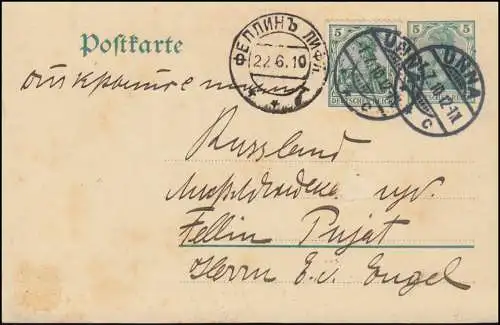 Postkarte
5
5
DEUTSCHES REICH
ФЕЛЛИНЪ ЛИФЛ.
22.6.10
UNNA
UNNA
c
c
открытое письмо
Russland
Fellin Pujat
Herrn E. v. Engel